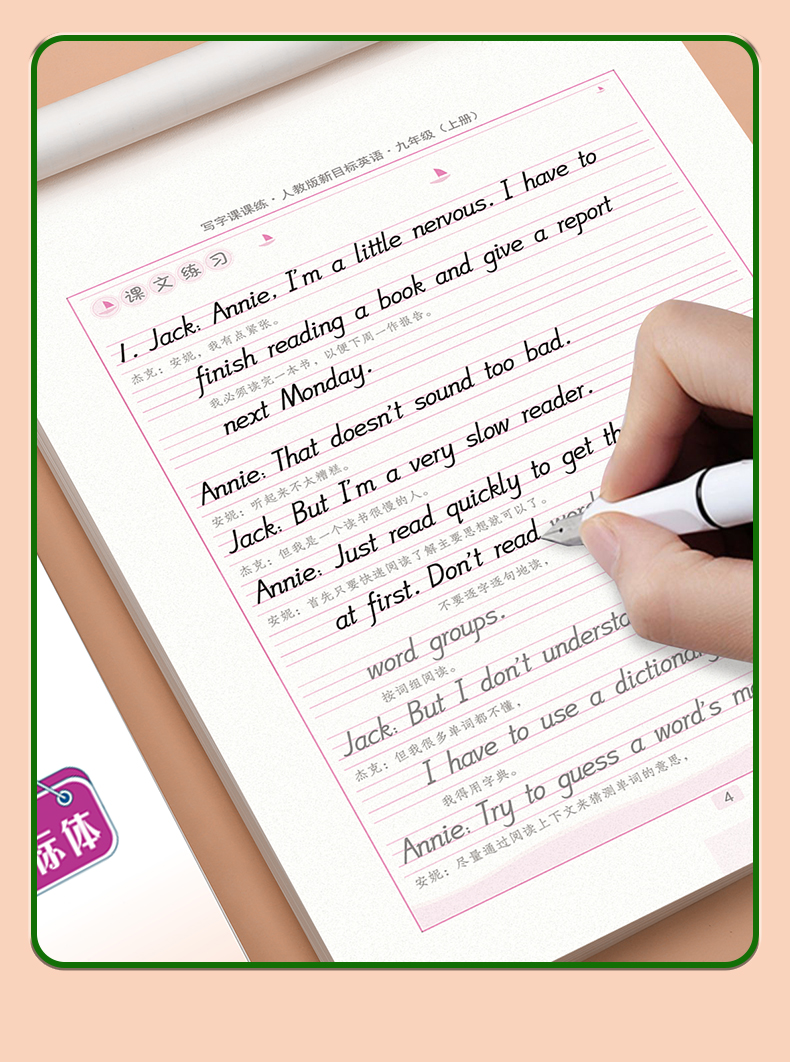 写字课课练·人教版新目标英语·九年级（上册）
课文练习
1. Jack: Annie, I'm a little nervous. I have to
杰克：安妮，我有点紧张。
finish reading a book and give a report
我必须读完一本书，以便下周一作报告。
next Monday.
Annie: That doesn't sound too bad.
安妮：听起来不太糟糕。
Jack: But I'm a very slow reader.
杰克：但我是一个读书很慢的人。
Annie: Just read quickly to get th
安妮：首先只要快速阅读了解主要思想就可以了。
at first. Don't read word
不要逐字逐句地读，
word groups.
按词组阅读。
Jack: But I don't understa
杰克：但我很多单词都不懂，
I have to use a dictionary
我得用字典。
Annie: Try to guess a word's me
安妮：尽量通过阅读上下文来猜测单词的意思，
4
标体